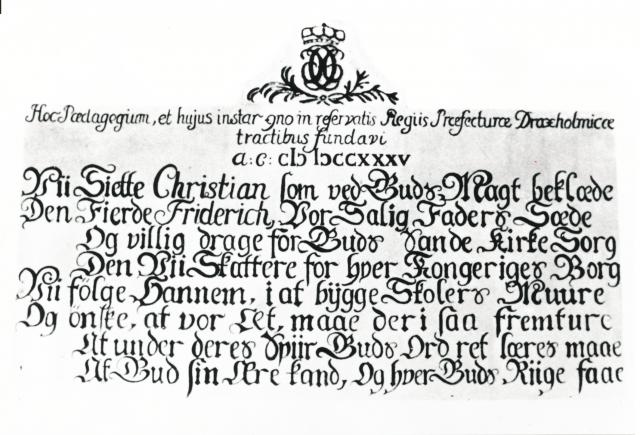 Hoc Pædagogium, et hujus instar 9no in reservatis Regiis Præfecturæ Draxholmicæ
tractibus fundavi
a: c: cIↄ Iↄccxxxv
Vii Siette Christian som ved Guds Magt beklæde
Den Fierde Friderich, Vor Salig Faders Sæde
Og villig drage for Guds Sande Kirke Sorg
Den Vii Skattere for hver Kongeriges Borg
Vii fölge Hannem, i at bÿgge Skolers Muure
Og önske, at vor Æt, maae der i saa fremture
At under deres Spiir Guds Ord ret læres maae
At Gud sin Ære kand, Og hver Guds Riige faae